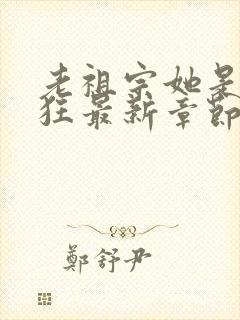 老祖宗她是
狂最新章節
鄭舒尹